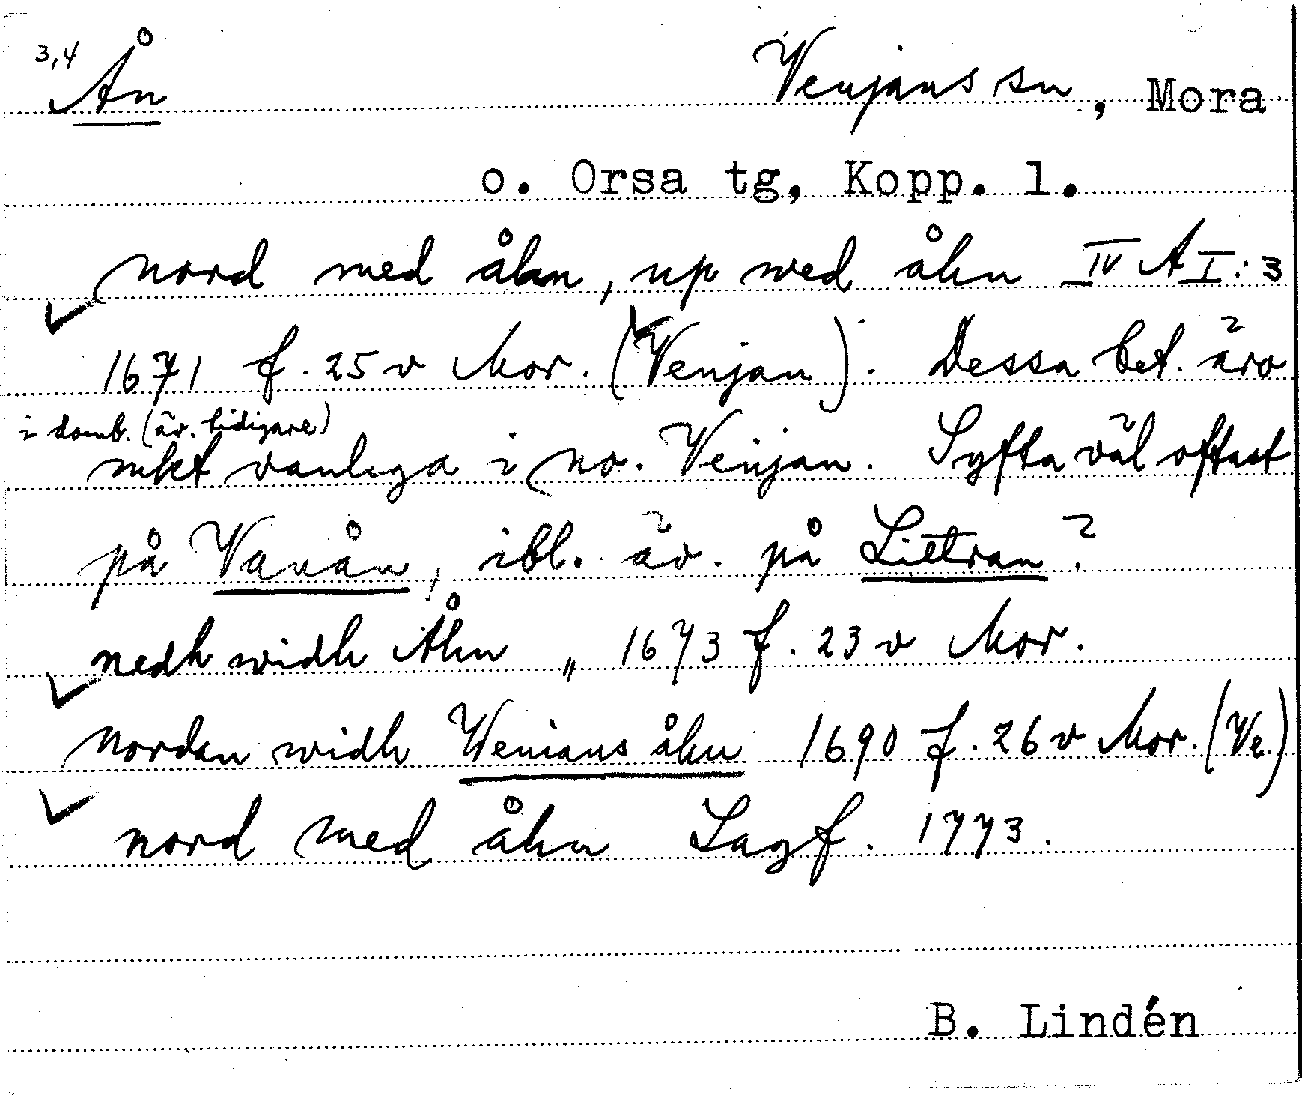 3,4 Ån Venjans sn, Mora
o. Orsa tg, Kopp. l.
nord med åhn, up wed åhn IV A I:3
1671 f. 25 v Mor. (Venjan). Dessa bet. äro
i domb. (äv. tidigare)
mkt vanliga i no. Venjan. Syfta väl oftast
på Vanån, ibl. äv. på Littran?
nedh widh Åhn " 1673 f. 23 v Mor.
nordan widh Wenians åhn 1690 f. 26 v Mor. (Ve.)
nord med åhn Lagf. 1773.
B. Lindén